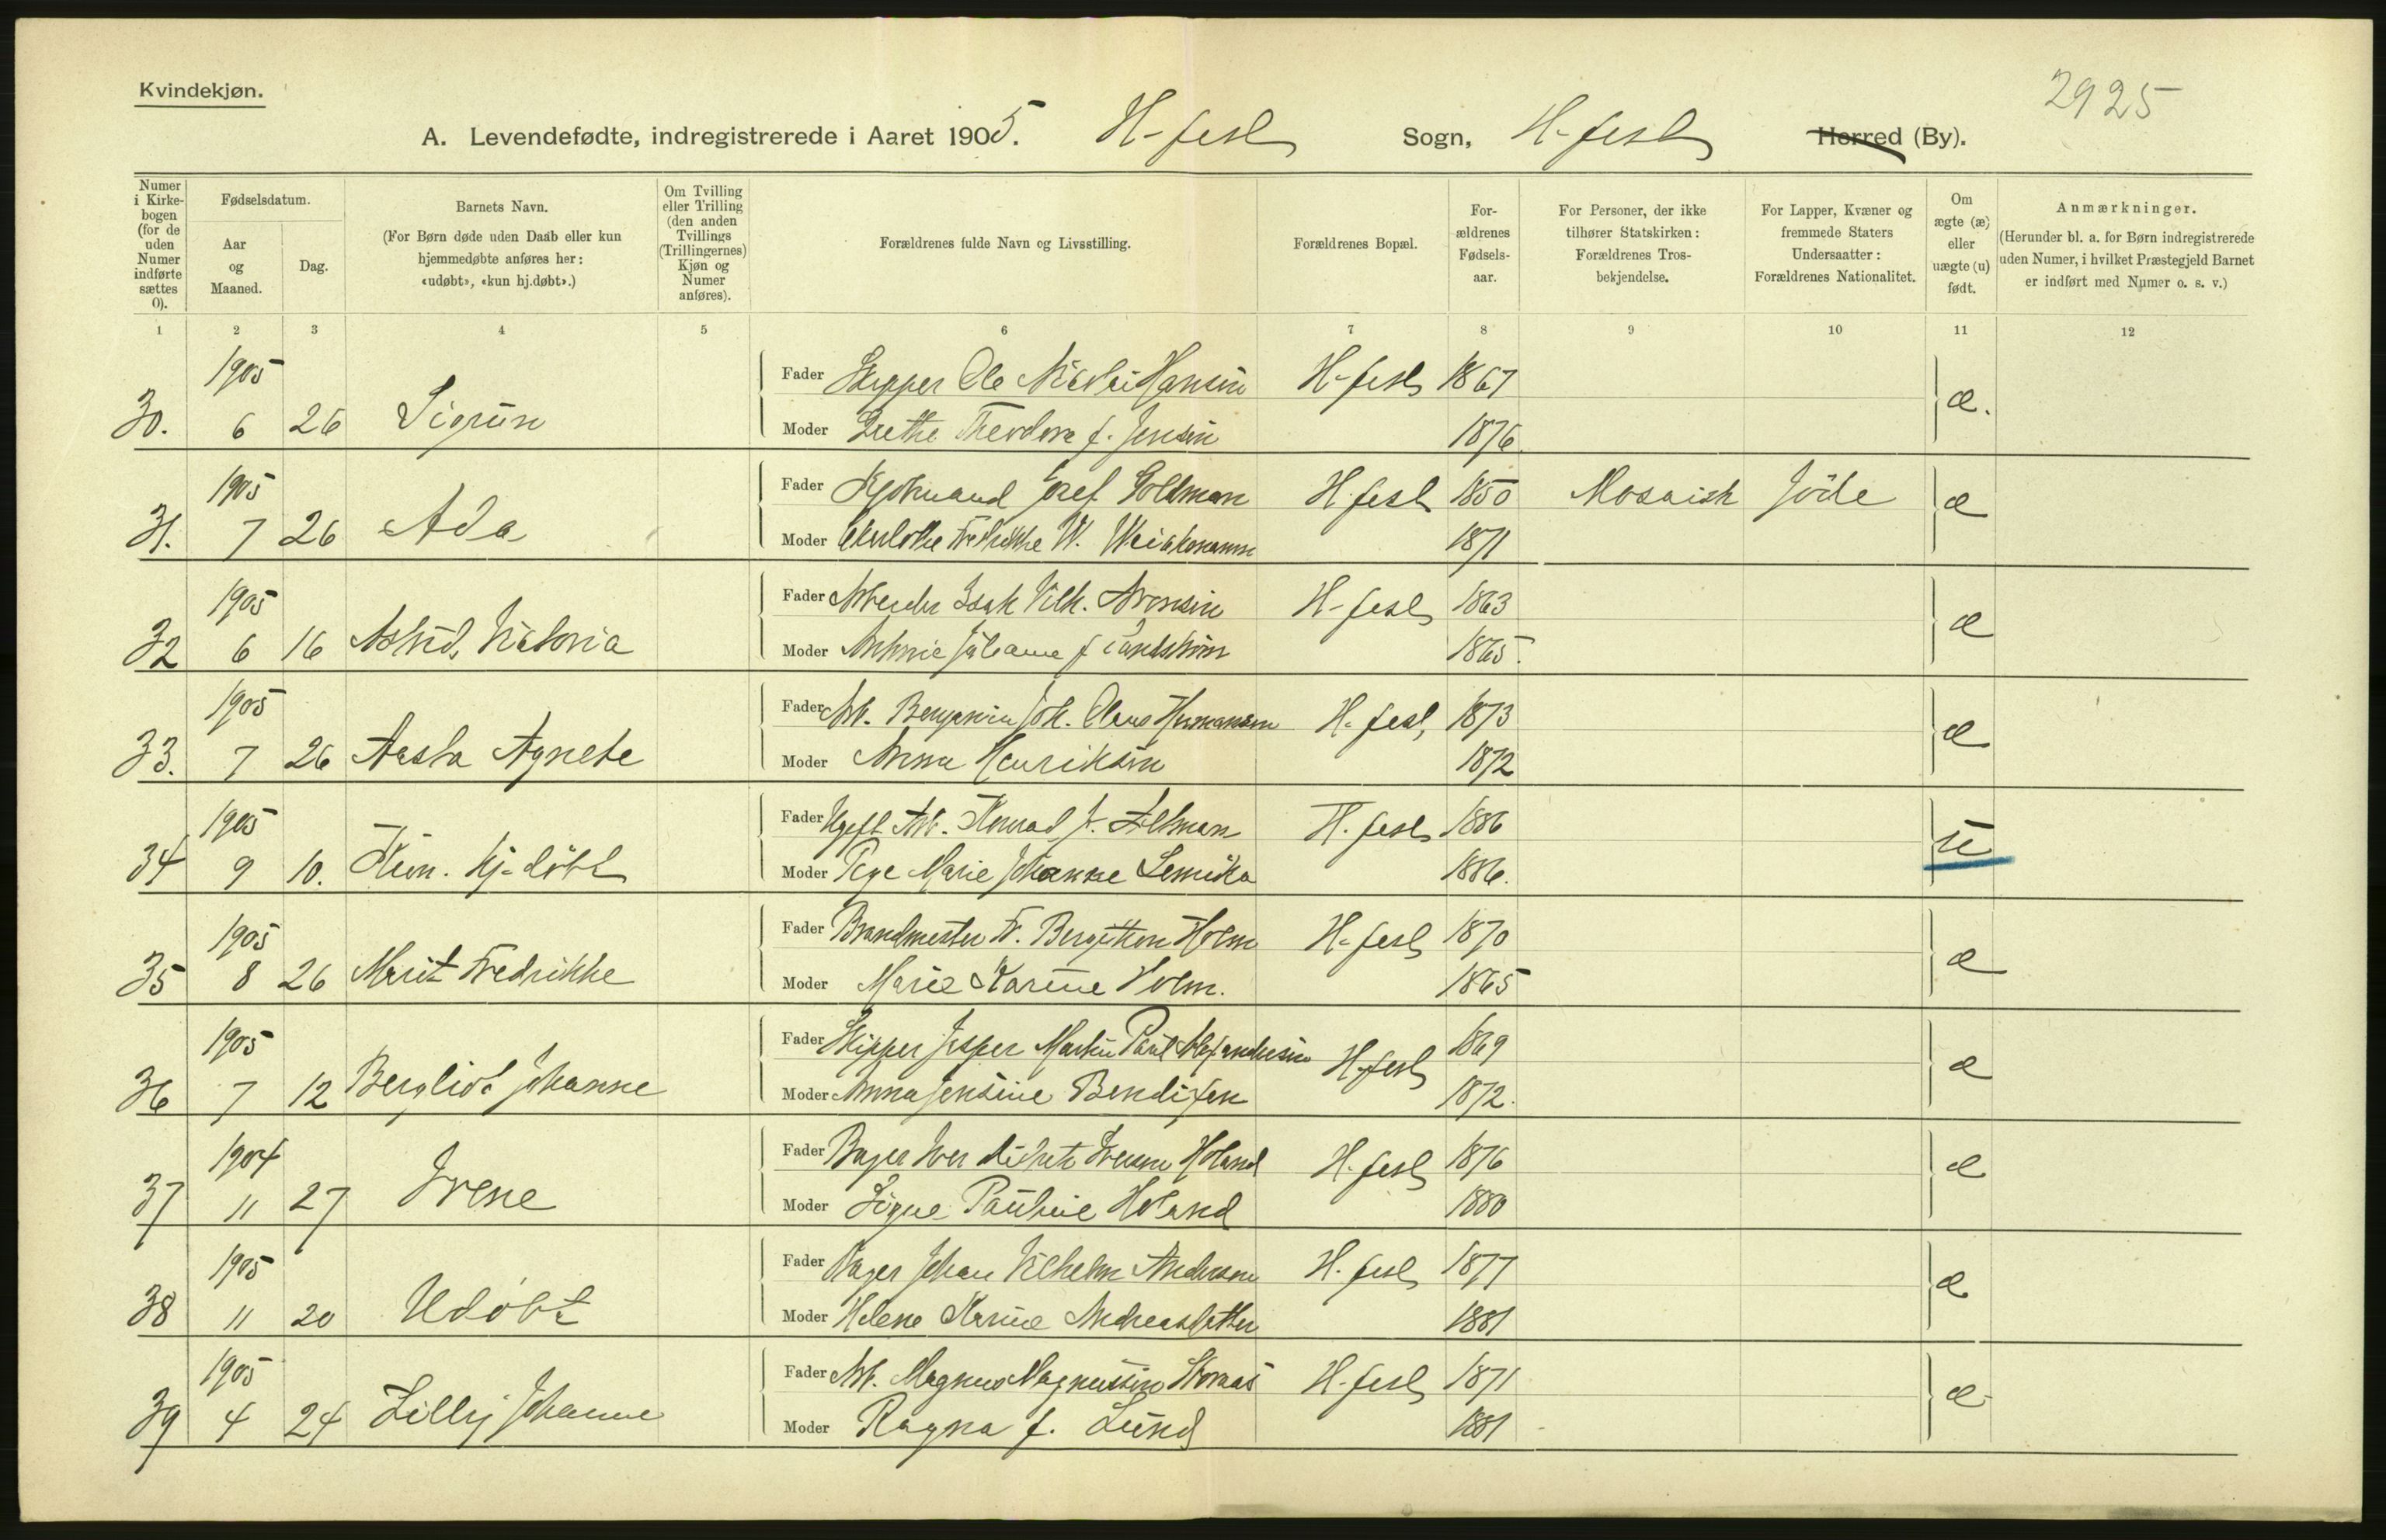 Kvindekjøn.
2925
A. Levendefødte, indregistrerede i Aaret 1905. H-fest Sogn, H-fest Herred (By).
Numer i Kirkebogen (for de uden Numer indførte sættes 0).
Fødselsdatum.
Aar og Maaned.
Dag.
Barnets Navn.
(For Børn døde uden Daab eller kun hjemmedøbte anføres her: «udøbt», «kun hj.døbt».)
Om Tvilling eller Trilling (den anden Tvillings (Trillingernes) Kjøn og Numer anføres).
Forældrenes fulde Navn og Livsstilling.
Forældrenes Bopæl.
Forældrenes Fødselsaar.
For Personer, der ikke tilhører Statskirken: Forældrenes Trosbekjendelse.
For Lapper, Kvæner og fremmede Staters Undersaatter: Forældrenes Nationalitet.
Om ægte (æ) eller uægte (u) født.
Anmærkninger.
(Herunder bl. a. for Børn indregistrerede uden Numer, i hvilket Præstegjeld Barnet er indført med Numer o. s. v.)
1 2 3 4 5 6 7 8 9 10 11 12
1905
Fader Skipper Ole Nikolai Hansen H-fest 1867
30. 6 26 Sigrun æ.
Moder Grethe Theodora f. Jensen 1876.
1905
Fader Kjøbmand Josef Goldman H.fest 1850 Mosaisk Jöde
31. 7 26 Ada æ
Moder Fredrikke W. 1871
1905
Fader Arbeider Isak Vilh. Aronsen H-fest 1863
32 6 16 Astrid Viktoria æ
Moder Juliane f 1865.
1905
Fader Arb. Benjamin Joh. Olaus Hermansen H-fest, 1873
33. 7 26 Aasta Agnete æ
Moder Anna Henriksen 1872
1905
Fader Ugift Arb. Konrad J. H. fest 1886
34 9 10. Kun. hj-døbt u
Moder Pige Marie Johanne 1886.
1905
Fader Brandmester Fr. Bergithon Holm H-fest 1870
35 8 26 Marit Fredrikke æ
Moder Marie Karine Holm. 1865
1905
Fader Skipper Jesper Martin Paul Alexandersen H-fest 1869
36 7 12 Bergliot Johanne æ
Moder Anna Jensine Bendixen 1872.
1904
Fader Bager Iver Holand H-fest 1876
37 11 27 Irene æ
Moder Signe Pauline Holand 1880
1905
Fader Bager Johan Vilhelm Andersen H. fest 1877
38 11 20 Udøbt æ
Moder Helene Karine 1881
1905
Fader Arb. Magnus Magnussen H-fest 1871
39 4 24 Lilly Johanne æ
Moder Ragna f. Lund 1881